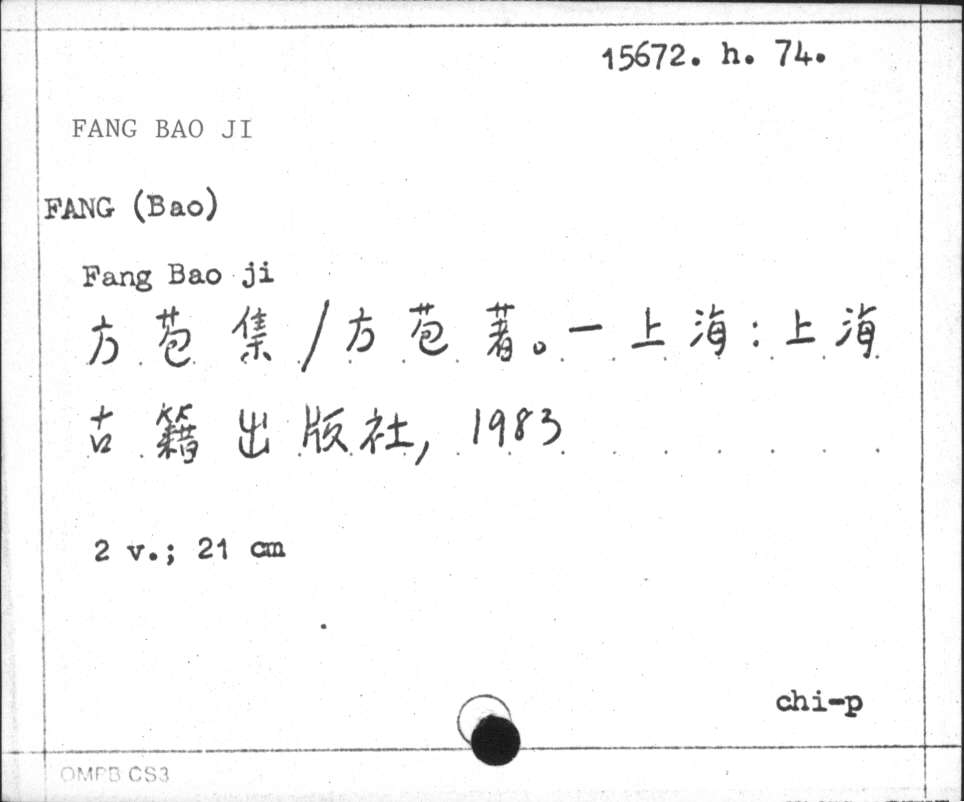 15672. h. 74.
FANG BAO JI
FANG (Bao)
Fang Bao ji
方苞集/方苞著。一上海:上海
古籍出版社, 1983
2 v.; 21 cm
chi-p
OMPB CS3